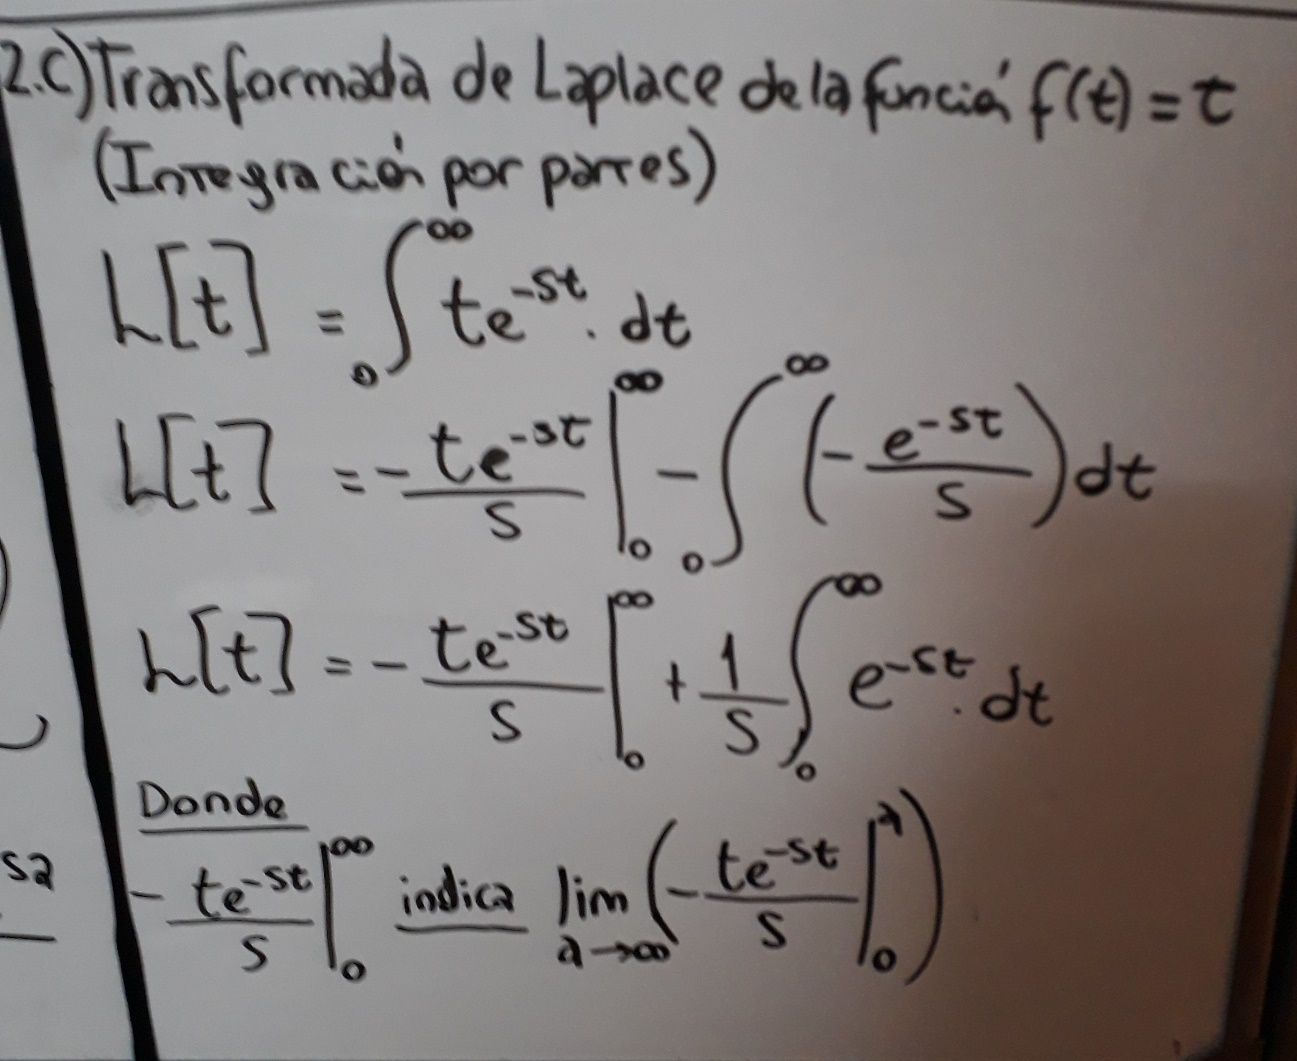 2.C) Transformada de Laplace de la función f(t) = t
(Integración por partes)
L[t] = ∫₀^∞ te^-st . dt
L[t] = - te^-st / s |₀^∞ - ∫₀^∞ (- e^-st / s) dt
L[t] = - te^-st / s |₀^∞ + 1/s ∫₀^∞ e^-st . dt
Donde
sa
- te^-st / s |₀^∞ indica lim a→∞ (- te^-st / s |₀^a)